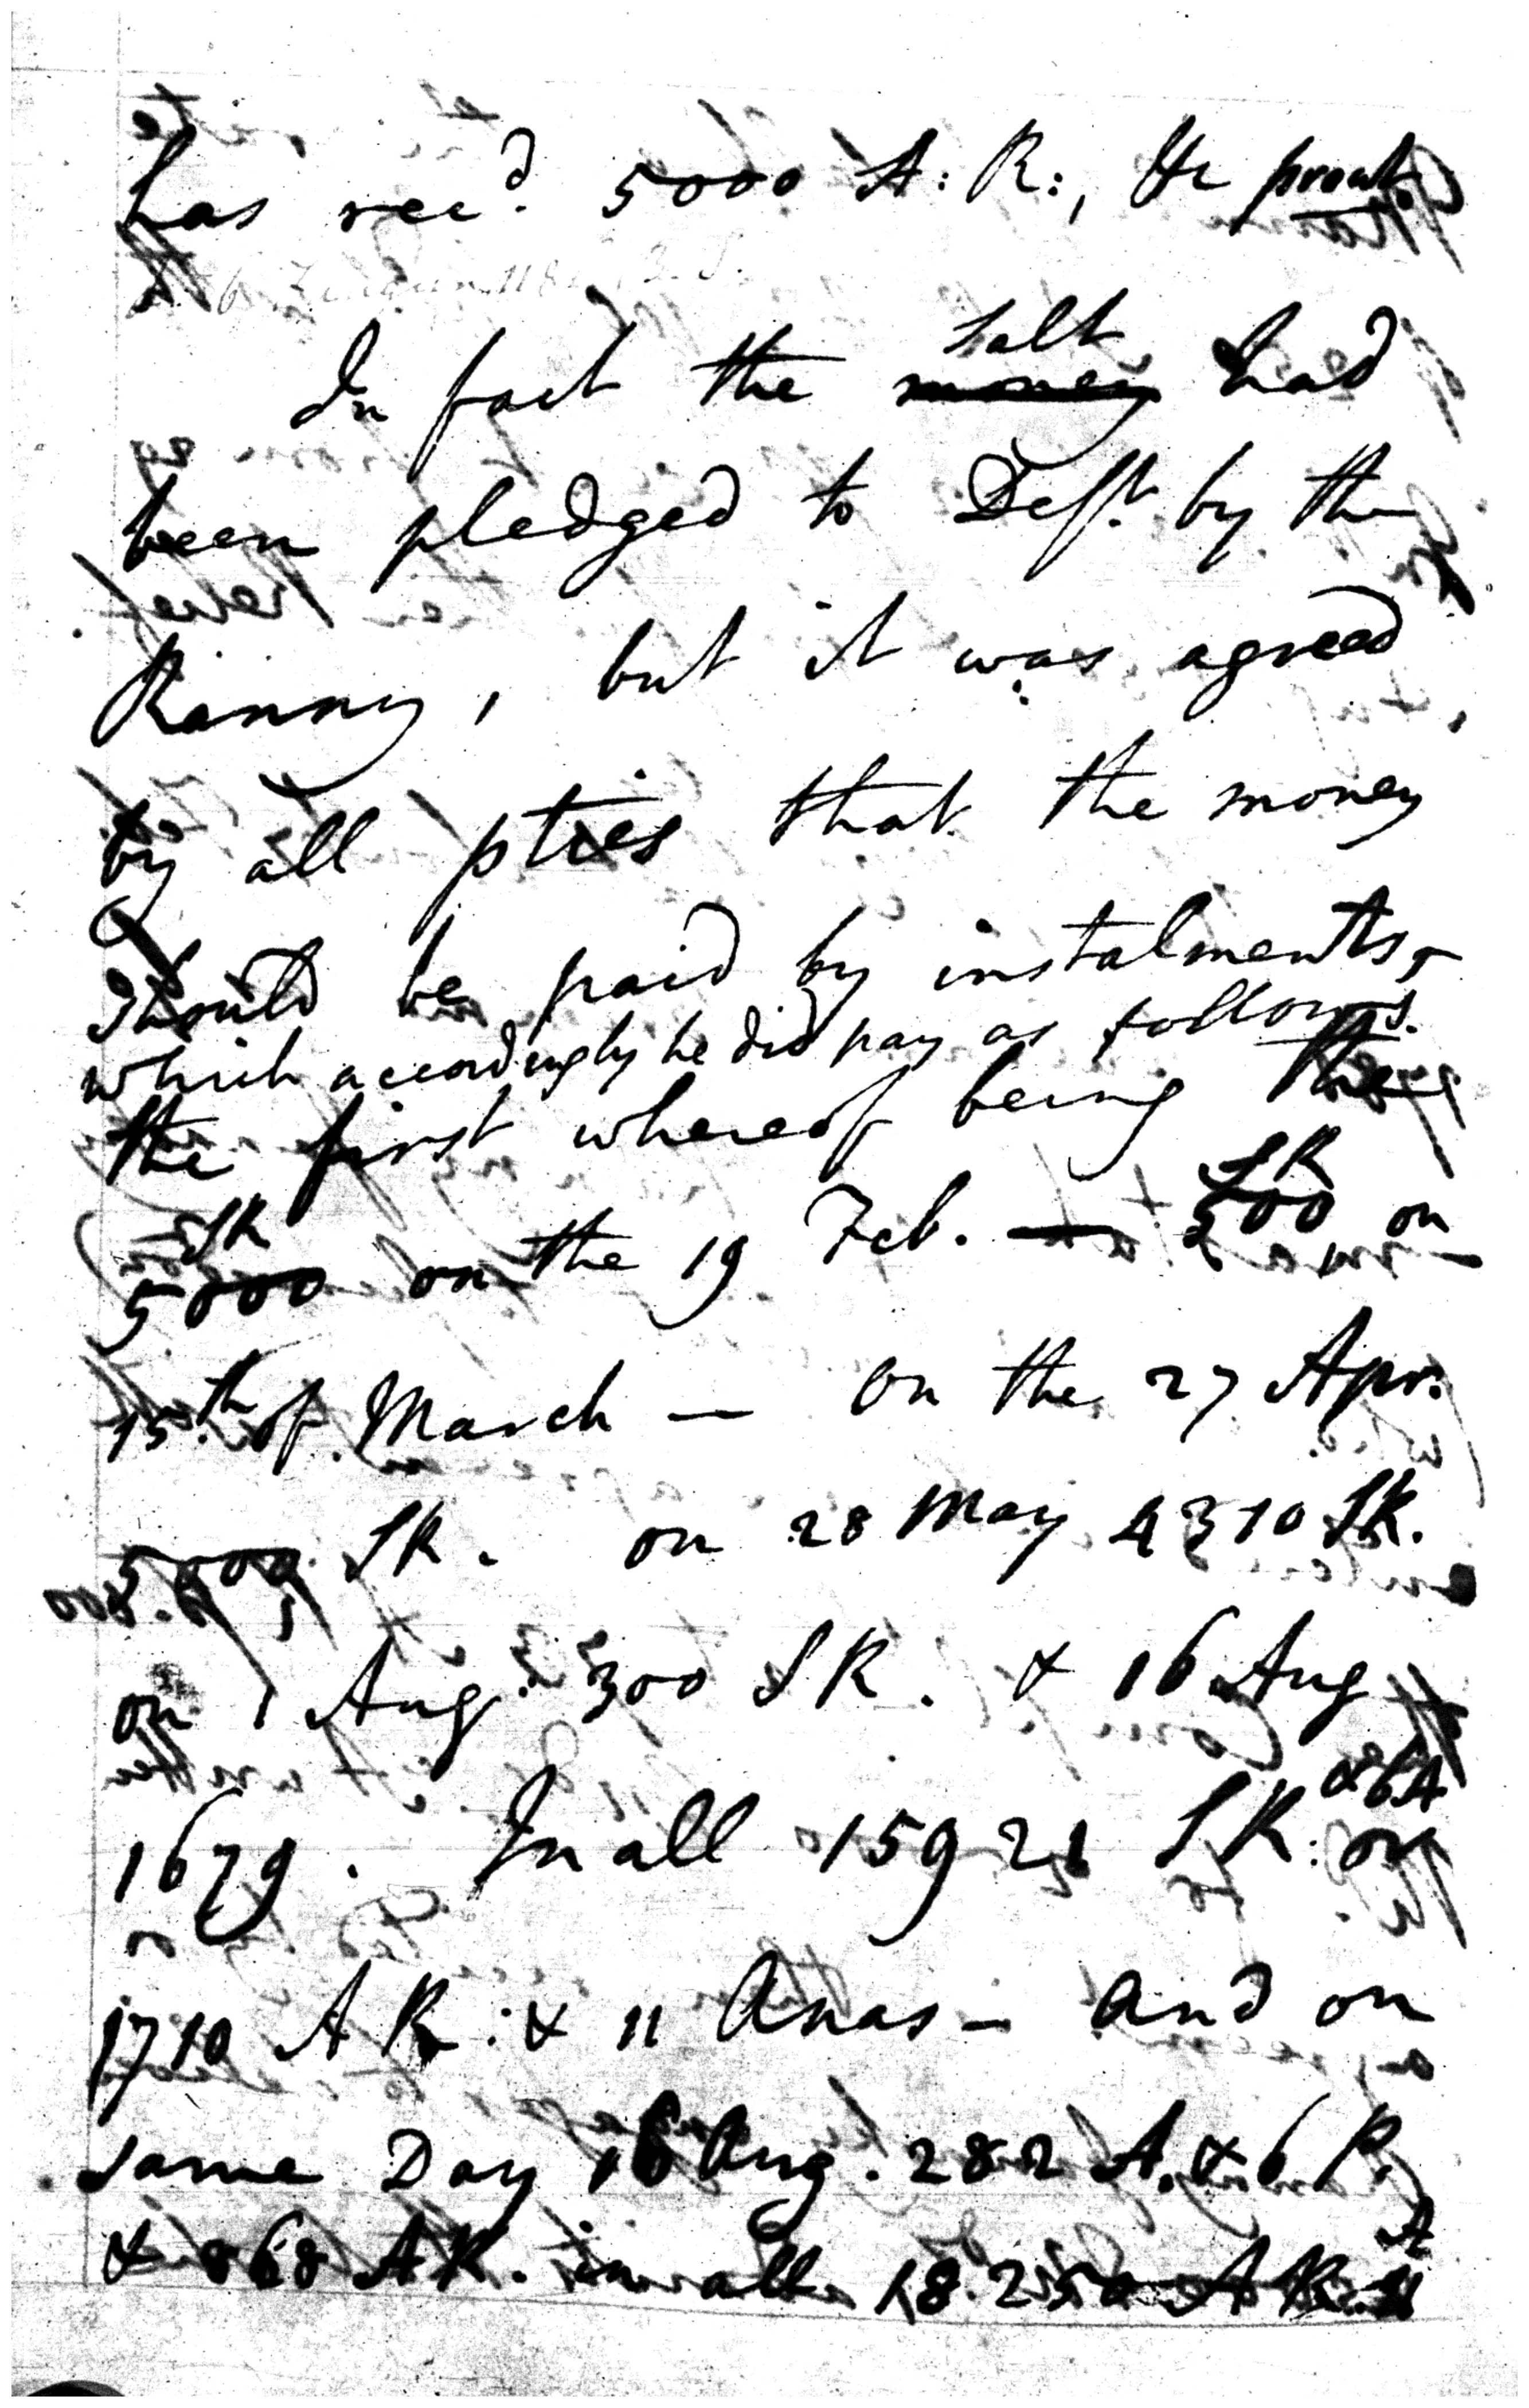 has rec.d 5000 A: R:, &c prout.
In fact the money salt had
been pledged to Deft. by the
Ranny, but it was agreed
by all pties that the money
should be paid by instalments,
which accordingly he did pay as follows.
the first whereof being the
5000 SR on the 19 Feb. — 500 SR, on
15.th of March — on the 27 Apr.
5,000 SR. on 28 May 4310 SR.
on 1 Aug. 300 SR. & 16 Aug
1679. In all 15921 SR: & 6 A or
1710 A R: & 11 Anas — and on
same Day 16 Aug. 282 A. & 6 P.
& 868 AR. in all 18.250 AR. 11 A